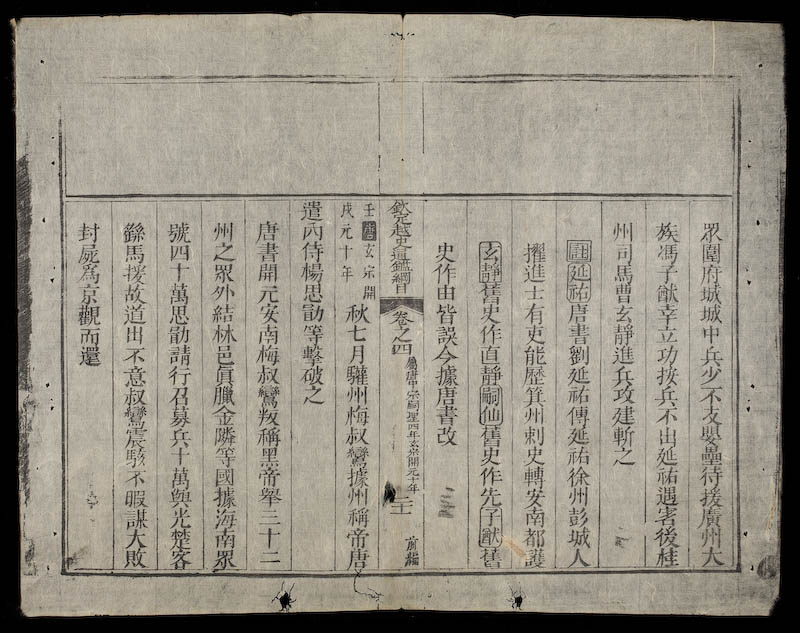 眾圍府城城中兵少不支嬰壘待援廣州大
族馮子猷幸立功按兵不出延祐遇害後桂
州司馬曹玄靜進兵攻建斬之
註延祐唐書劉延祐傳延祐徐州彭城人
擢進士有吏能歷箕州刺史轉安南都護
玄靜舊史作直靜嗣仙舊史作先子猷舊
史作由皆誤今據唐書改
欽定越史通鑑綱目
卷之四
屬唐中宗嗣聖四年玄宗開元十年
前編
壬戌唐玄宗開元十年
秋七月驩州梅叔鸞據州稱帝唐
遣內侍楊思勗等擊破之
唐書開元安南梅叔鸞叛稱黑帝舉三十二
州之眾外結林邑真臘金隣等國據海南眾
號四十萬思勗請行召募兵十萬與光楚客
繇馬援故道出不意叔鸞震駭不暇謀大敗
封屍為京觀而還